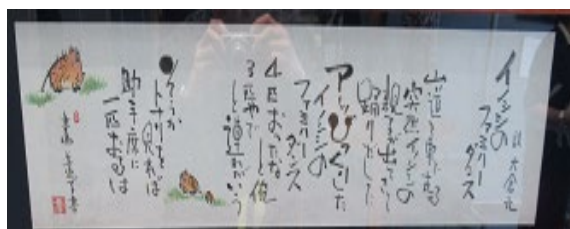 イノシシの
ファミリー
ダンス
山道を車で走る
突然イノシシの
親子が出てきて
踊りだした
アッびっくりした
イノシシの
ファミリー
ダンス
4匹おったな
と俺
3匹やで
と連れがいう
そうか
トナリを見れば
助手席に
一匹おるは